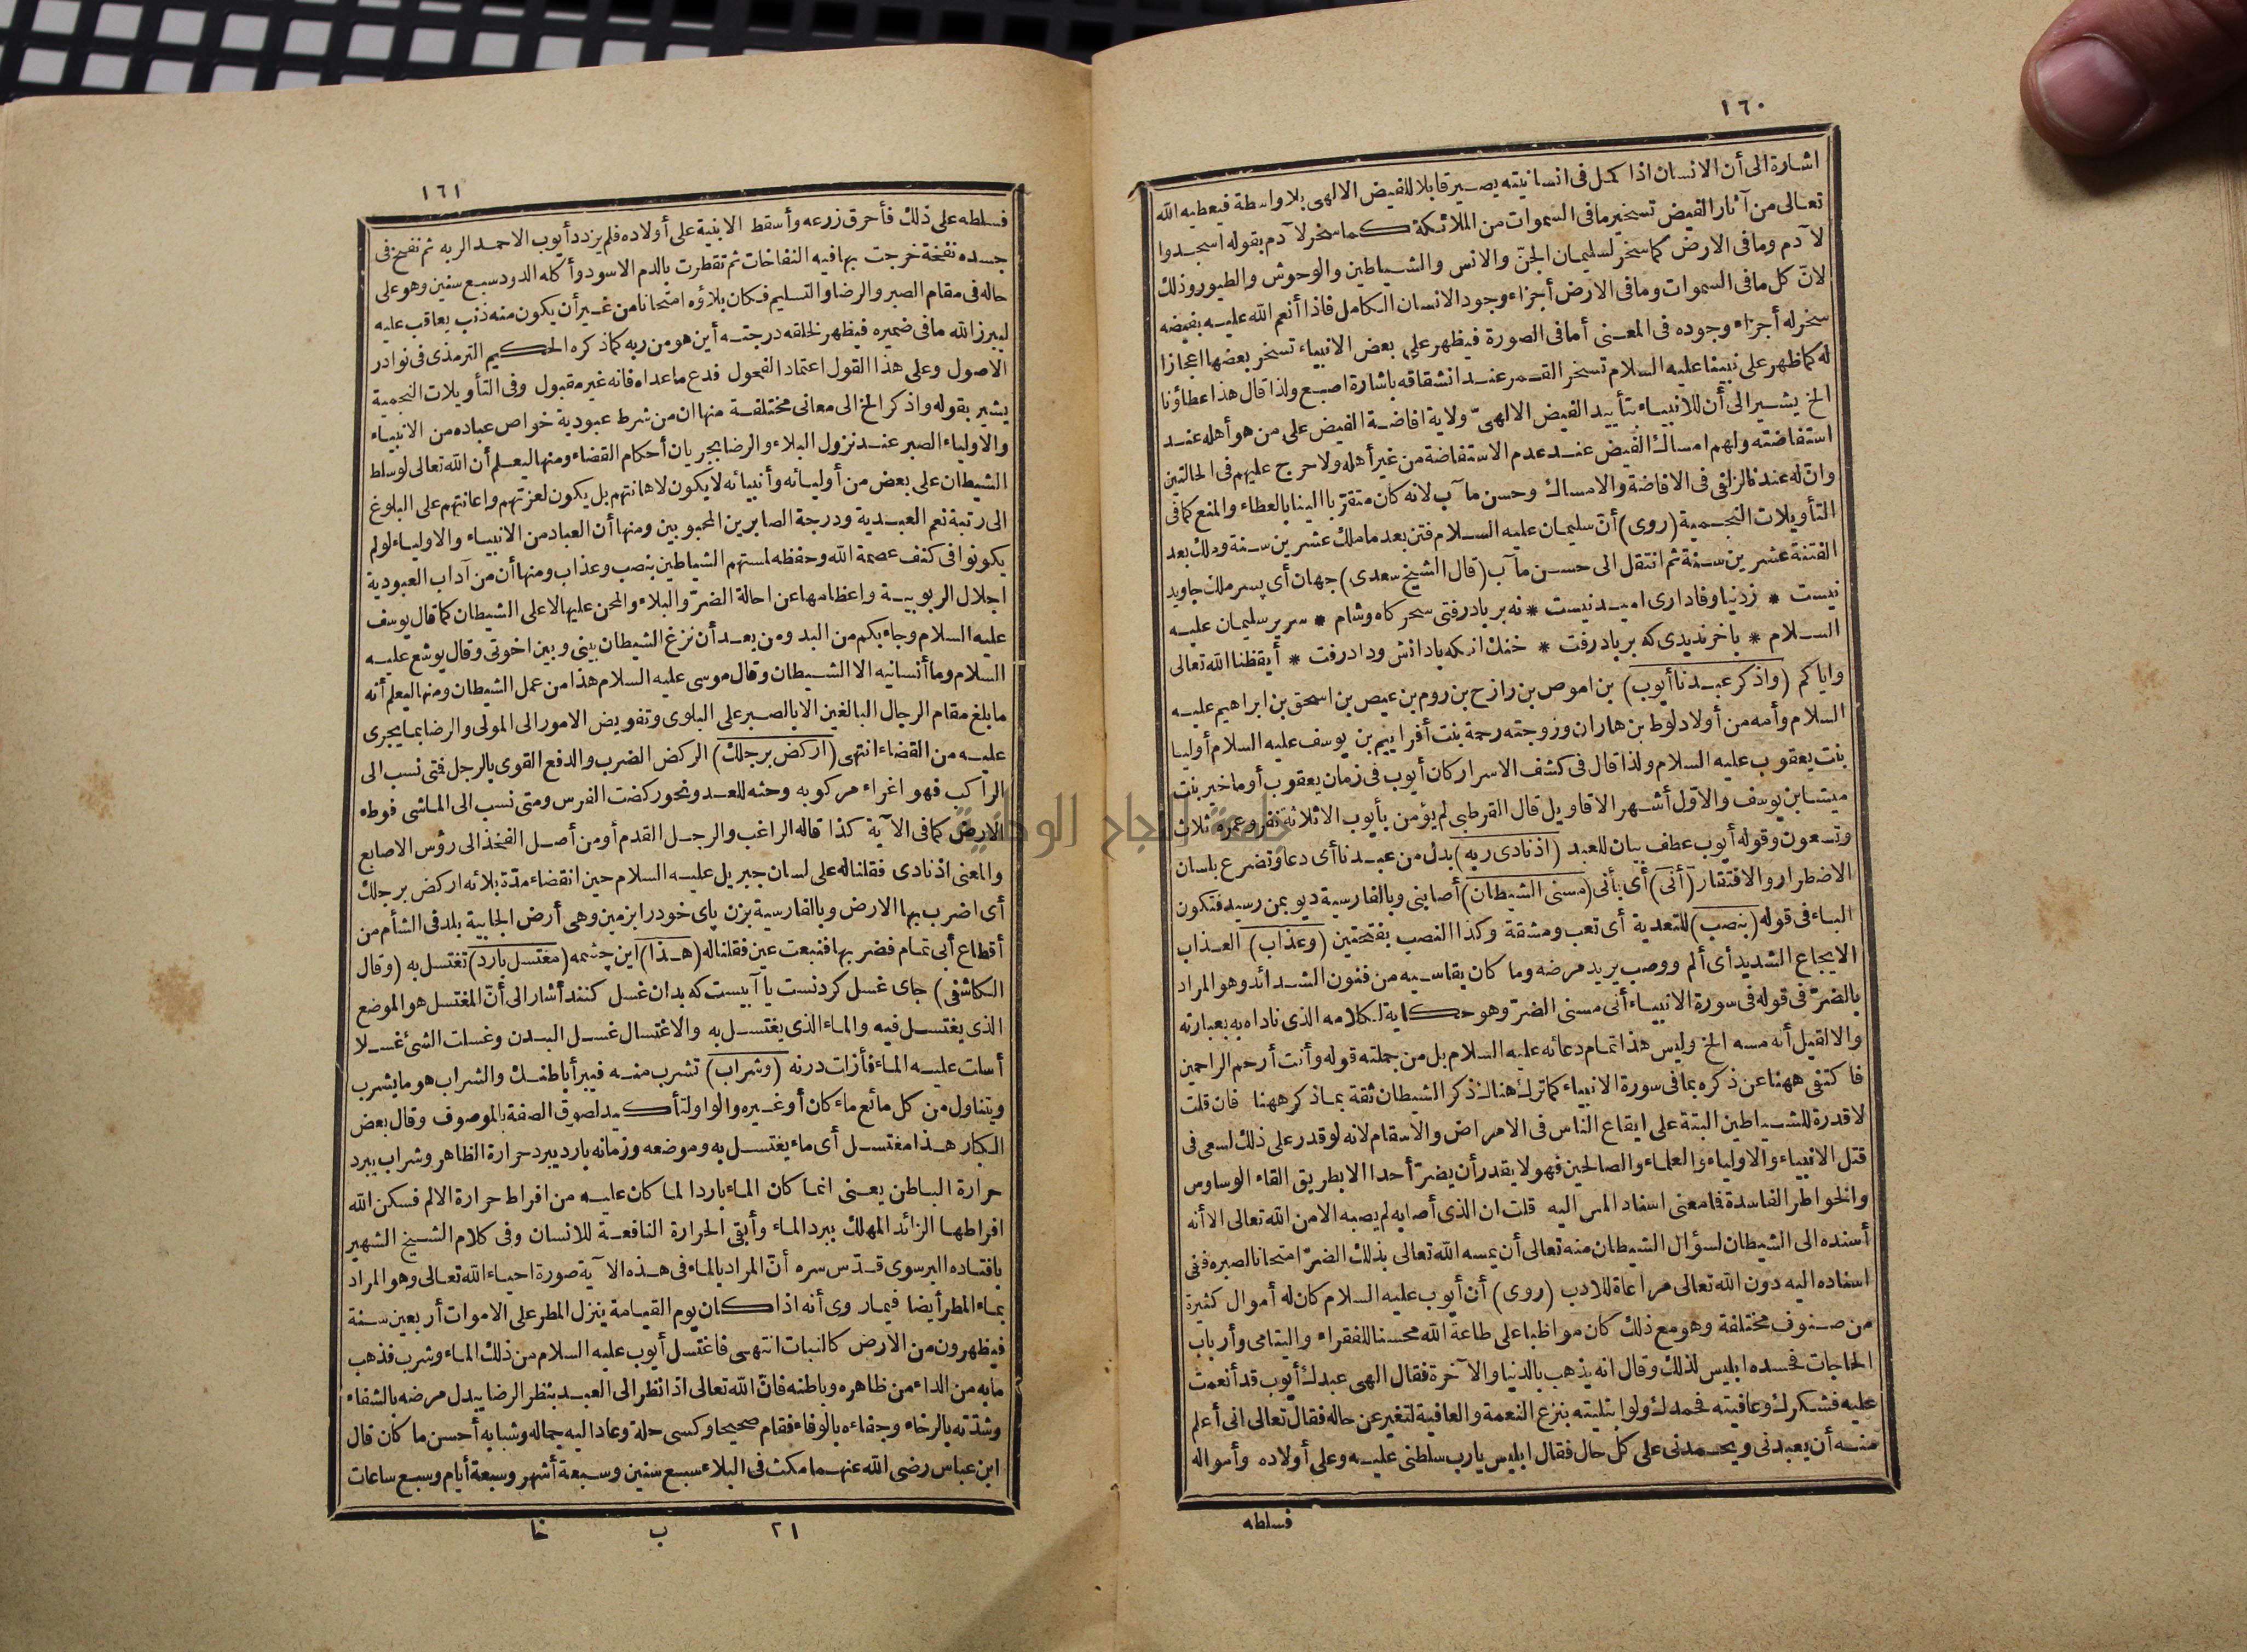 ١٦٠
اشارة الى أن الانسان اذا كمل فى انسانيته يصير قابلا للفيض الالهى بلا واسطة فيعطيه الله
تعالى من آثار الفيض تسخير ما فى السموات من الملائكة كما سخر لآدم بقوله اسجدوا
لآدم وما فى الارض كما سخر لسليمان الجنّ والانس والشياطين والوحوش والطيور وذلك
لانّ كل ما فى السموات وما فى الارض أجزاء وجود الانسان الكامل فاذا أنعم الله عليه بفيضه
سخر له أجزاء وجوده فى المعنى أما فى الصورة فيظهر على بعض الانبياء تسخر بعضها اعجازا
له كما ظهر على نبينا عليه السلام تسخر القمر عند انشقاقه باشارة اصبع ولذا قال هذا عطاؤنا
الخ يشير الى أن للانبياء بتأييد الفيض الالهىّ ولاية افاضة الفيض على من هو أهله عند
استفاضته ولهم امساك الفيض عند عدم الاستفاضة من غير أهله ولا حرج عليهم فى الحالتين
وانّ له عندنا لزلفى فى الافاضة والامساك وحسن مآب لانه كان متقرّبا الينا بالعطاء والمنع كما فى
التأويلات النجمية (روى) أنّ سليمان عليه السلام فتن بعد ما ملك عشرين سنة وملك بعد
الفتنة عشرين سنة ثم انتقل الى حسن مآب (قال الشيخ سعدى) جهان أى پسر ملك جاويد
نيست * زدنيا وفادارى اميد نيست * نه بر باد رفتى سحر كاه وشام * سرير سليمان عليه
السلام * باخر نديدى كه بر باد رفت * خنك انكه با دانش وداد رفت * أيقظنا الله تعالى
واياكم (واذكر عبدنا أيوب) بن اموص بن رازح بن روم بن عيص بن اسحق بن ابراهيم عليه
السلام وأمه من أولاد لوط بن هاران وزوجته رحمة بنت أفراييم بن يوسف عليه السلام أوليا
بنت يعقوب عليه السلام ولذا قال فى كشف الاسرار كان أيوب فى زمان يعقوب أو ماخير بنت
ميشا بن يوسف والاوّل أشهر الاقاويل قال القرطبى لم يؤمن بأيوب الا ثلاثة نفر وعمره ثلاث
وتسعون وقوله أيوب عطف بيان للعبد (اذ نادى ربه) بدل من عبدنا أى دعا وتضرع بلسان
الاضطرار والافتقار (أنى) أى بأنى (مسنى الشيطان) أصابنى وبالفارسية ديو بمن رسيد فتكون
الباء فى قوله (بنصب) للتعدية أى تعب ومشقة وكذا النصب بفتحتين (وعذاب) العذاب
الايجاع الشديد أى ألم ووصب يريد مرضه وما كان يقاسيه من فنون الشدائد وهو المراد
بالضرّ فى قوله فى سورة الانبياء أنى مسنى الضرّ وهو حكاية لكلامه الذى ناداه به بعبارته
والا لقيل أنه مسه الخ وليس هذا تمام دعائه عليه السلام بل من جملته قوله وأنت أرحم الراحمين
فاكتفى ههنا عن ذكره بما فى سورة الانبياء كما ترك هناك ذكر الشيطان ثقة بما ذكر ههنا فان قلت
لا قدرة للشياطين البتة على ايقاع الناس فى الامراض والاسقام لانه لو قدر على ذلك لسعى فى
قتل الانبياء والاولياء والعلماء والصالحين فهو لا يقدر أن يضرّ أحدا الا بطريق القاء الوساوس
والخواطر الفاسدة فما معنى اسناد المس اليه قلت ان الذى أصابه لم يصبه الا من الله تعالى الا أنه
أسنده الى الشيطان لسؤال الشيطان منه تعالى أن يمسه الله تعالى بذلك الضرّ امتحانا لصبره ففى
اسناده اليه دون الله تعالى مراعاة للادب (روى) أنّ أيوب عليه السلام كان له أموال كثيرة
من صنوف مختلفة وهو مع ذلك كان مواظبا على طاعة الله محسنا للفقراء واليتامى وأرباب
الحاجات فحسده ابليس لذلك وقال انه يذهب بالدنيا والآخرة فقال الهى عبدك أيوب قد أنعمت
عليه فشكرك وعافيته فحمدك ولو ابتليته بنزع النعمة والعافية لتغير عن حاله فقال تعالى انى أعلم
منه أن يعبدنى ويحمدنى على كل حال فقال ابليس يارب سلطنى عليه وعلى أولاده وأمواله
فسلطه
١٦١
فسلطه على ذلك فأحرق زرعه وأسقط الابنية على أولاده فلم يزدد أيوب الا حمد الربه ثم نفخ فى
جسده نفخة خرجت بها فيه النفاخات ثم تقطرت بالدم الاسود وأكله الدود سبع سنين وهو على
حاله فى مقام الصبر والرضا والتسليم فكان بلاؤه امتحانا من غير أن يكون منه ذنب يعاقب عليه
ليبرز الله ما فى ضميره فيظهر لخلقه درجته أين هو من ربه كما ذكره الحكيم الترمذى فى نوادر
الاصول وعلى هذا القول اعتماد الفحول فدع ما عداه فانه غير مقبول وفى التأويلات النجمية
يشير بقوله واذكر الخ الى معانى مختلفة منها ان من شرط عبودية خواص عباده من الانبياء
والاولياء الصبر عند نزول البلاء والرضا بجريان أحكام القضاء ومنها ليعلم أن الله تعالى لو سلط
الشيطان على بعض من أوليائه وأنبيائه لا يكون لاهانتهم بل يكون لعزتهم واعانتهم على البلوغ
الى رتبة نعم العبدية ودرجة الصابرين المحبوبين ومنها أن العباد من الانبياء والاولياء لو لم
يكونوا فى كنف عصمة الله وحفظه لمستهم الشياطين بنصب وعذاب ومنها أن من آداب العبودية
اجلال الربوبية واعظامها عن احالة الضرّ والبلاء والمحن عليها لا على الشيطان كما قال يوسف
عليه السلام وجاء بكم من البدو من بعد أن نزغ الشيطان بينى وبين اخوتى وقال يوشع عليه
السلام وما أنسانيه الا الشيطان وقال موسى عليه السلام هذا من عمل الشيطان ومنها ليعلم أنه
ما بلغ مقام الرجال البالغين الا بالصبر على البلوى وتفويض الامور الى المولى والرضا بما يجرى
عليه من القضاء انتهى (اركض برجلك) الركض الضرب والدفع القوى بالرجل فمتى نسب الى
الراكب فهو اغراء مركوبه وحثه للعدو نحو ركضت الفرس ومتى نسب الى الماشى فوطء
الارض كما فى الآية كذا قاله الراغب والرجل القدم أو من أصل الفخذ الى رؤس الاصابع
والمعنى اذ نادى فقلنا له على لسان جبريل عليه السلام حين انقضاء مدّة بلائه اركض برجلك
أى اضرب بها الارض وبالفارسية بزن پاى خود را بزمين وهى أرض الجابية بلد فى الشأم من
أقطاع أبى تمام فضر بها فنبعت عين فقلنا له (هذا) اين چشمه (مغتسل بارد) تغتسل به (وقال
الكاشفى) جاى غسل كردنست يا آبيست كه بدان غسل كنند أشار الى أنّ المغتسل هو الموضع
الذى يغتسل فيه والماء الذى يغتسل به والاغتسال غسل البدن وغسلت الشئ غسلا
أسلت عليه الماء فأزلت درنه (وشراب) تشرب منه فيبرأ باطنك والشراب هو ما يشرب
ويتناول من كل مائع ماء كان أو غيره والواو لتأكيد لصوق الصفة بالموصوف وقال بعض
الكبار هذا مغتسل أى ماء يغتسل به وموضعه وزمانه بارد يبرد حرارة الظاهر وشراب يبرد
حرارة الباطن يعنى انما كان الماء باردا لما كان عليه من افراط حرارة الالم فسكن الله
افراطها الزائد المهلك ببرد الماء وأبقى الحرارة النافعة للانسان وفى كلام الشيخ الشهير
بافتاده البرسوى قدّس سره أنّ المراد بالماء فى هذه الآية صورة احياء الله تعالى وهو المراد
بماء المطر أيضا فيما روى أنه اذا كان يوم القيامة ينزل المطر على الاموات أربعين سنة
فيظهرون من الارض كالنبات انتهى فاغتسل أيوب عليه السلام من ذلك الماء وشرب فذهب
ما به من الداء من ظاهره وباطنه فانّ الله تعالى اذا نظر الى العبد بنظر الرضا يبدل مرضه بالشفاء
وشدّته بالرخاء وجفاءه بالوفاء فقام صحيحا وكسى حلة وعاد اليه جماله وشبابه أحسن ما كان قال
ابن عباس رضى الله عنهما مكث فى البلاء سبع سنين وسبعة أشهر وسبعة أيام وسبع ساعات
٢١ ب خا